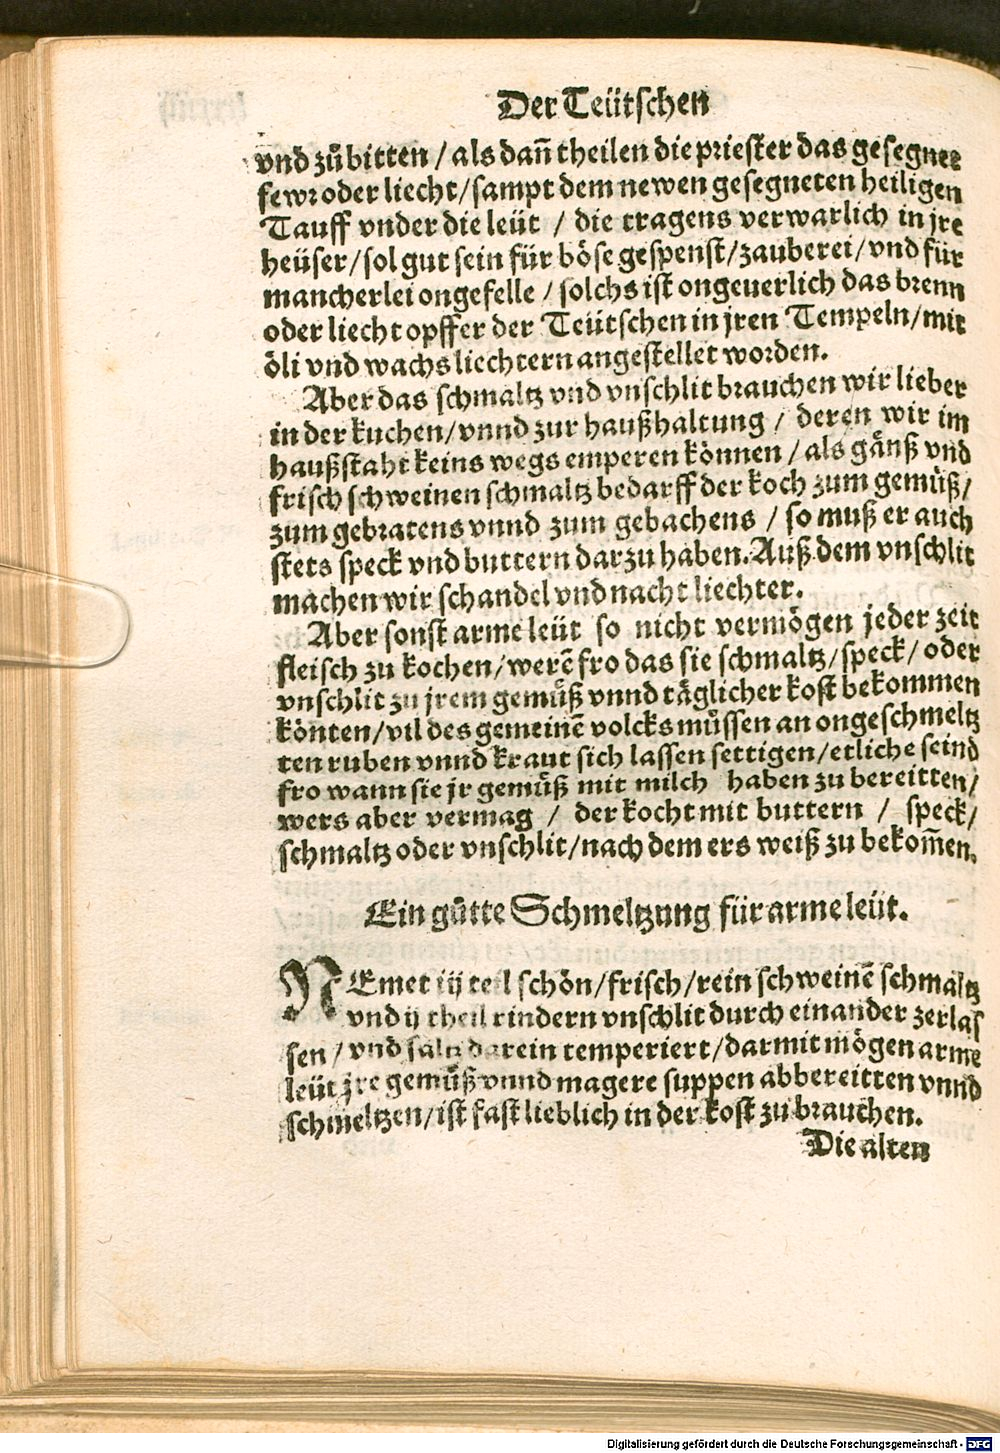 Der Teütschen
vnd zůbitten / als dañ theilen die priester das gesegnet
fewr oder liecht / sampt dem newen gesegneten heiligen
Tauff vnder die leüt / die tragens verwarlich in jre
heüser / sol gut sein für böse gespenst / zauberei / vnd für
mancherlei ongefelle / solchs ist ongeuerlich das brenn
oder liecht opffer der Teütschen in jren Tempeln / mit
öli vnd wachs liechtern angestellet worden.
Aber das schmaltz vnd vnschlit brauchen wir lieber
in der kuchen / vnnd zur haußhaltung / deren wir im
haußstaht keins wegs emperen können / als gänß vnd
frisch schweinen schmaltz bedarff der koch zum gemüß /
zum gebratens vnnd zum gebachens / so muß er auch
stets speck vnd buttern darzu haben. Auß dem vnschlit
machen wir schandel vnd nacht liechter.
Aber sonst arme leüt so nicht vermögen jeder zeit
fleisch zu kochen / werē fro das sie schmaltz / speck / oder
vnschlit zu jrem gemüß vnnd täglicher kost bekommen
könten / vil des gemeinē volcks müssen an ongeschmeltz
ten ruben vnnd kraut sich lassen settigen / etliche seind
fro wann sie jr gemüß mit milch haben zu bereitten /
wers aber vermag / der kocht mit buttern / speck /
schmaltz oder vnschlit / nach dem ers weiß zu bekom̄en.
Ein gůtte Schmeltzung für arme leüt.
NEmet iij teil schön / frisch / rein schweinē schmaltz
vnd ij theil rindern vnschlit durch einander zerlas
sen / vnd saltz darein temperiert / darmit mögen arme
leüt jre gemüß vnnd magere suppen abbereitten vnnd
schmeltzen / ist fast lieblich in der kost zu brauchen.
Die alten
Digitalisierung gefördert durch die Deutsche Forschungsgemeinschaft - DFG